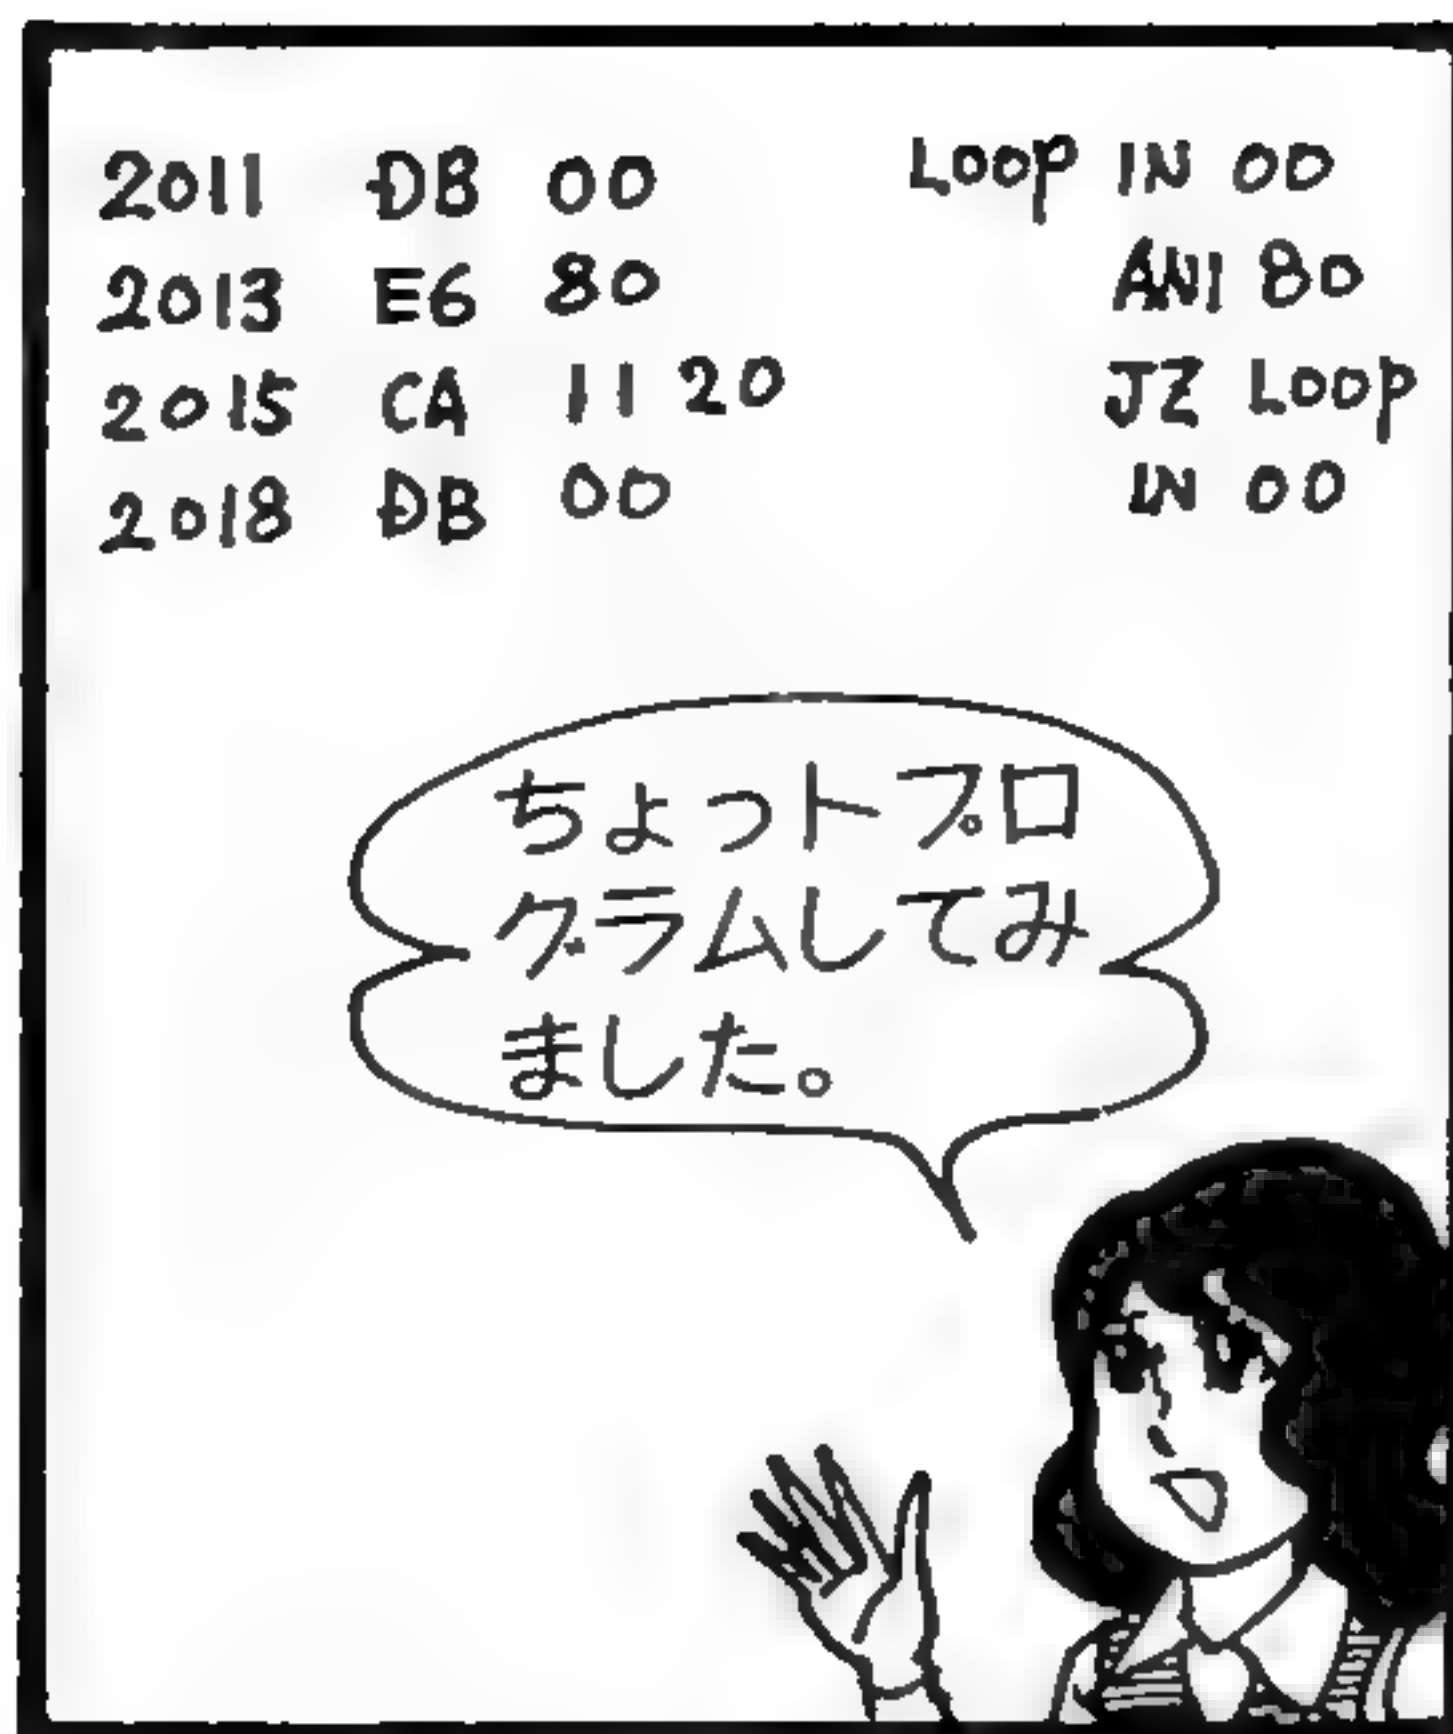 2011 DB 00 Loop IN 00
2013 E6 80 ANI 80
2015 CA 11 20 JZ Loop
2018 DB 00 IN 00
ちょっトプロ
グラムしてみ
ました。